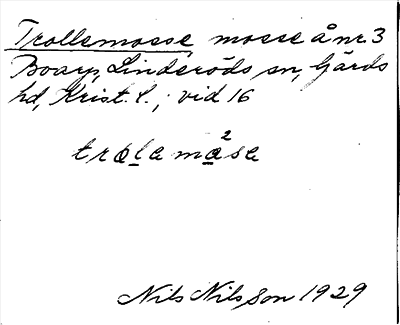 Trollemosse, mosse å nr 3
Boarp, Linderöds sn, Gärds
hd, Krist. l.; vid 16
trolema²se
Nils Nilsson 1929